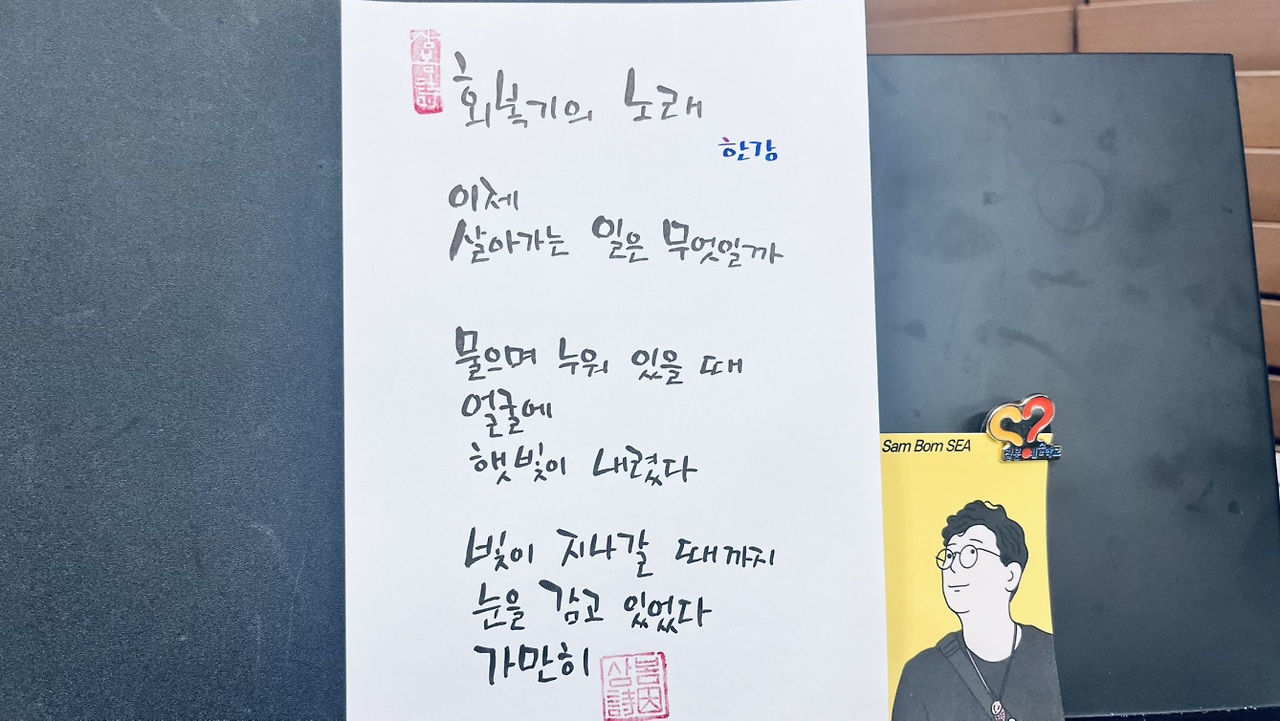 회복기의 노래
한강
이제
살아가는 일은 무엇일까
물으며 누워 있을 때
얼굴에
햇빛이 내렸다
빛이 지나갈 때까지
눈을 감고 있었다
가만히
Sam Bom SEA